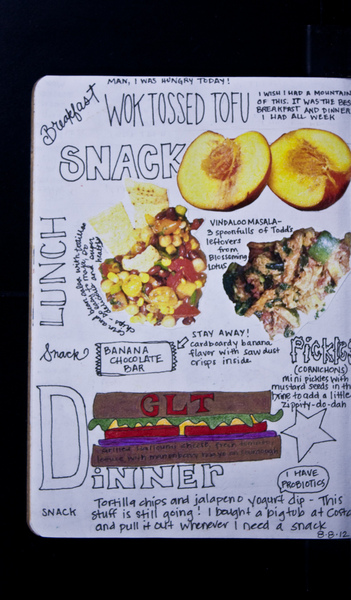 MAN, I WAS HUNGRY TODAY!
Breakfast
WOK TOSSED TOFU
I WISH I HAD A MOUNTAIN
OF THIS. IT WAS THE BES
BREAKFAST AND DINNER
I HAD ALL WEEK
SNACK
LUNCH
VINDALOO MASALA-
3 spoonfulls of Todd's
leftovers
from
Blossoming
Lotus
Snack
BANANA
CHOCOLATE
BAR
STAY AWAY!
cardboardy banana
flavor with saw dust
crisps inside
Pickles
(CORNICHONS)
mini pickles with
mustard seeds in th
brine to add a little
zip orty-do-dah
DINNER
GLT
I HAVE
PROBIOTICS
SNACK
Tortilla chips and jalapeno yogurt dip - This
stuff is still going! I bought a big tub at Costc
and pull it out whenever I need a snack
8-8-12